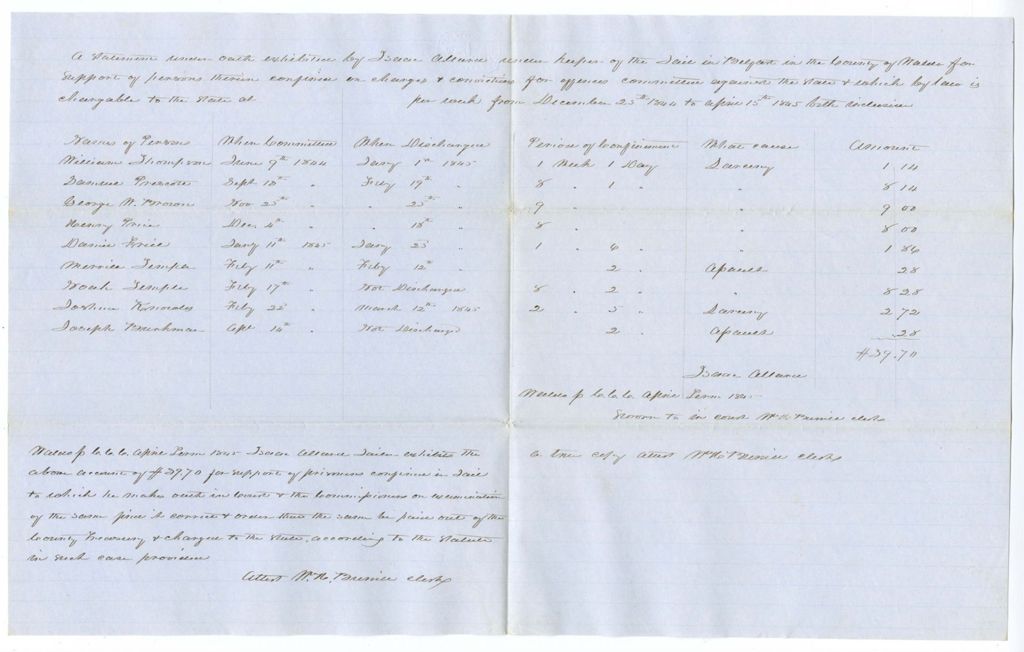 A Statement under oath exhibited by Isaac Allard under keeper of the Jail in Belfast in the County of Waldo for
support of persons therein confined on charges & conviction for offences committed against the State & which by law is
chargable to the State at per week from December 25th 1844 to April 15th 1845 both inclusive
Names of Persons When Committed When Discharged Period of Confinement What cause Amount
William Thompson June 9th 1844 Jany 1st 1845 1 Week 1 Day Larceny 1 14
Samuel Prescott Sept 18th " Feby 19th " 8 " 1 " " 8 14
George W. Brown Nov 25th " " 25th " 9 " " 9 00
Henry Price Dec. 4th " " 18th " 8 " " 8 00
Daniel Price Jany 11th 1845 Jany 23 " 1 " 6 " " 1 86
Merrill Temple Feby 11th " Feby 12th " 2 " Assault 28
Noah Temple Feby 17th " Not Discharged 8 " 2 " " 8 28
Joshua Knowles Feby 22 " March 12th 1845 2 " 5 " Larceny 2 72
Joseph Apl 14th " Not Discharged 2 " Assault .28
$39.70
Isaac Allard
Waldo ss Co. Co. Co. April Term 1845
Sworn to in court clerk
Waldo ss Co. Co. Co. April Term 1845 Isaac Allard Jailer exhibits the
above account of $39.70 for support of prisoners confined in Jail
to which he makes oath in Court & the Commissioners on examination
of the same find it correct & order that the same be paid out of the
County Treasury & charged to the State, according to the Statute
in such case provided
Attest clerk
A true copy attest clerk